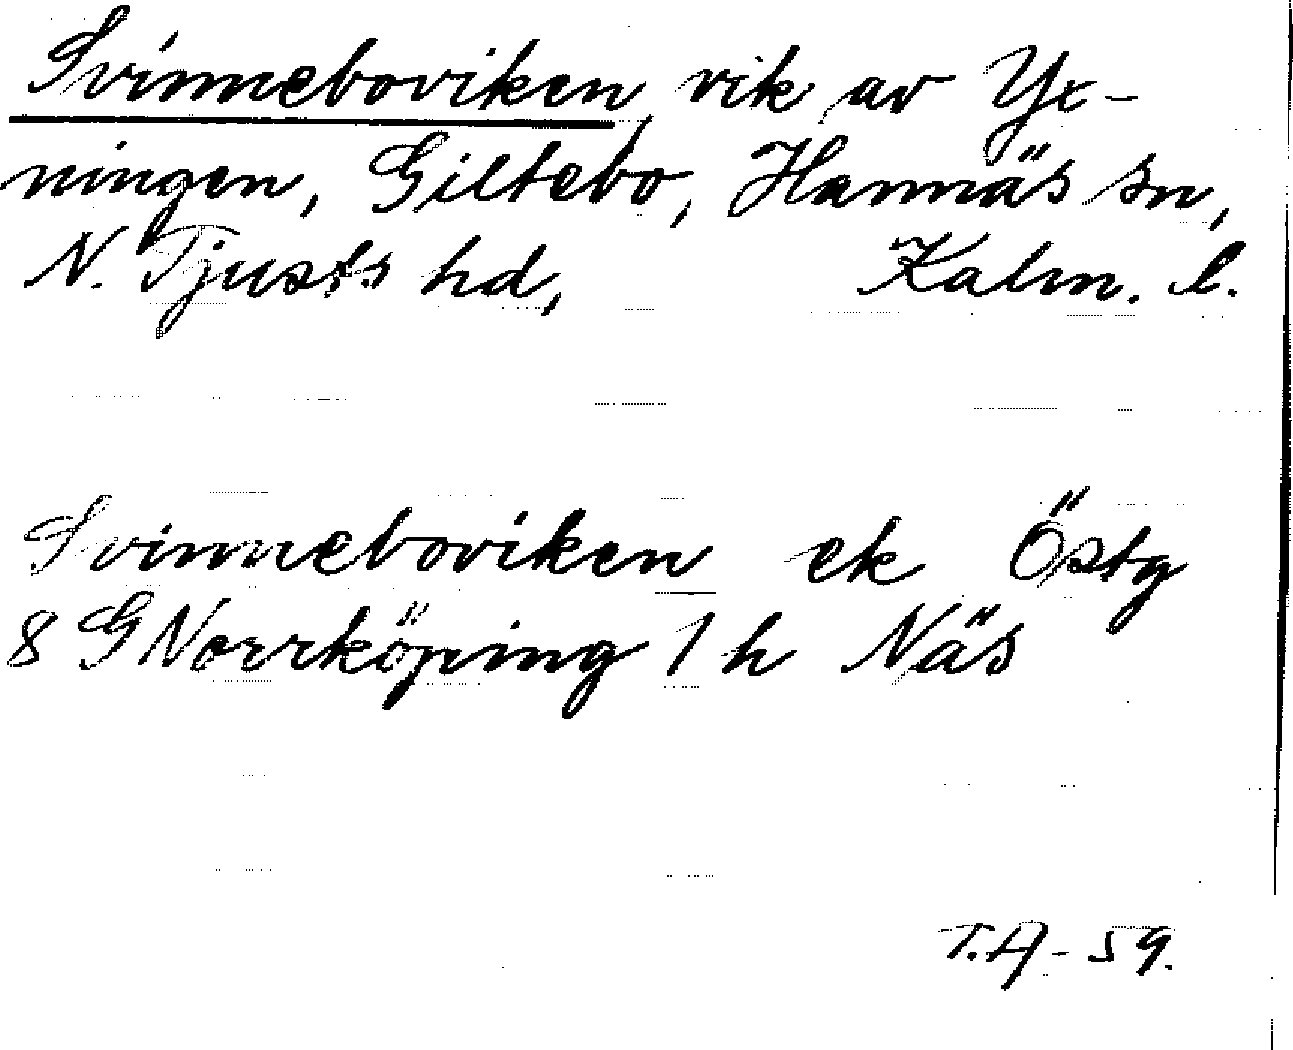 Svinneboviken, vik av Yx-
ningen, Giltebo, Hannäs sn,
N. Tjusts hd, Kalm. l.
Svinneboviken ek Östg
8 G Norrköping 1 h Näs
T.A-59.